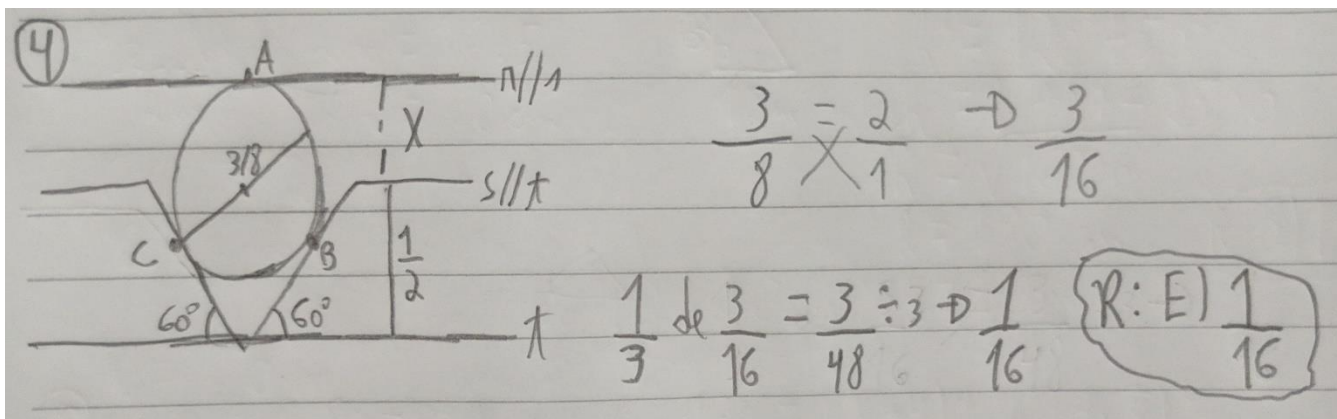 4
A
r//s
X
3/8
s//t
C
B
1/2
60°
60°
t
3/8 = 2/1 → 3/16
1/3 de 3/16 = 3/48 ÷3 → 1/16
R: E) 1/16